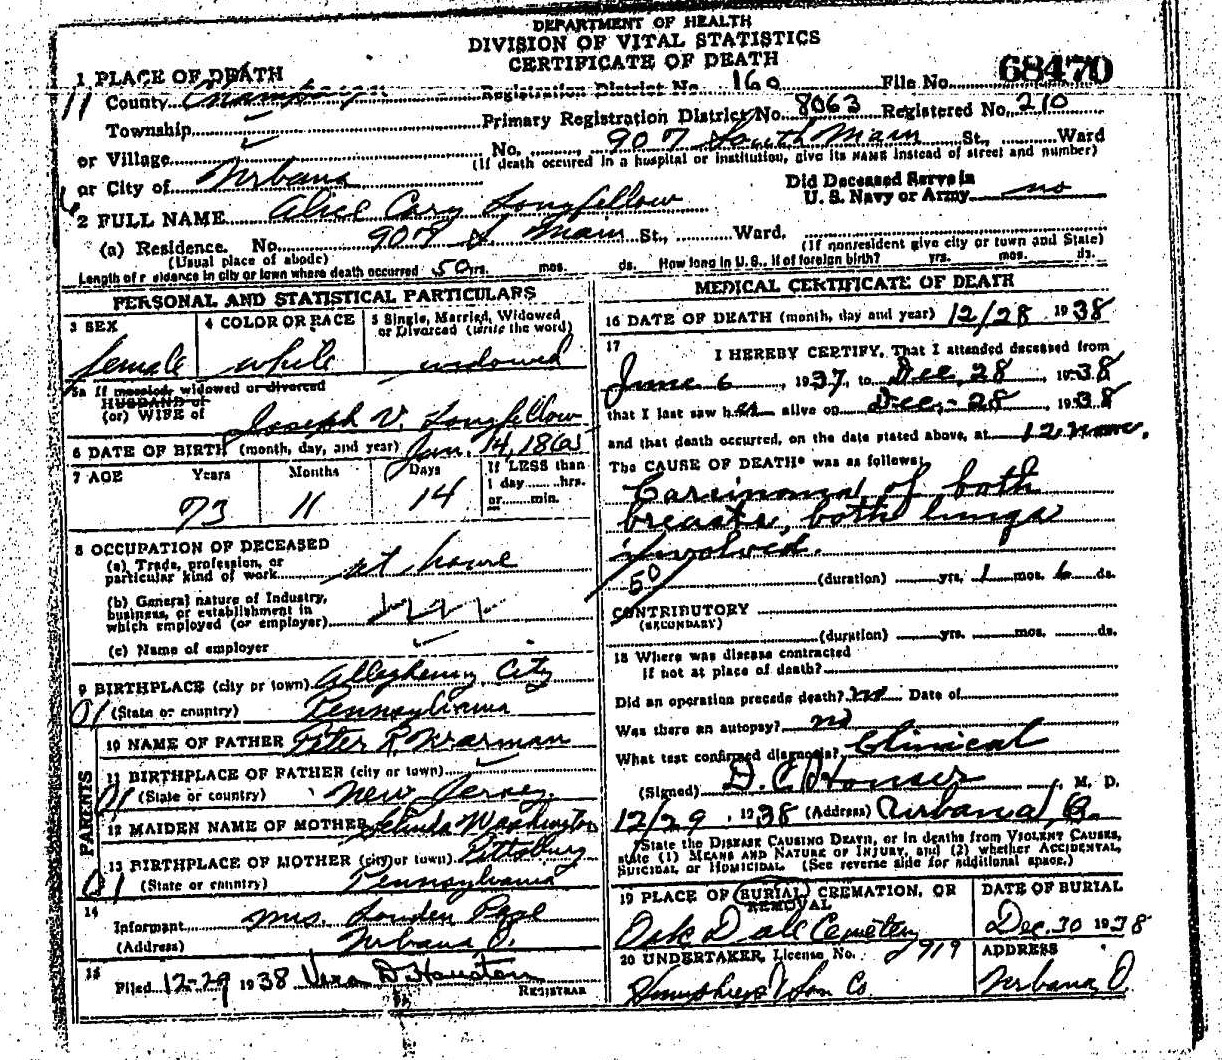 DEPARTMENT OF HEALTH
DIVISION OF VITAL STATISTICS
CERTIFICATE OF DEATH
1 PLACE OF DEATH
11 County Champaign Registration District No. 160 File No. 68470
Township Primary Registration District No. 8063 Registered No. 210
or Village No. 907 South Main St., Ward
(If death occured in a hospital or institution, give its NAME instead of street and number)
or City of Urbana
Did Deceased Serve in
U. S. Navy or Army no
2 FULL NAME Alice Cary Longfellow
(a) Residence. No. 907 S Main St., Ward.
(Usual place of abode) (If nonresident give city or town and State)
Length of r sidence in city or town where death occurred 50 yrs. mos. ds. How long in U.S., if of foreign birth? yrs. mos. ds.
PERSONAL AND STATISTICAL PARTICULARS
3 SEX 4 COLOR OR RACE 5 Single, Married, Widowed
or Divorced (write the word)
female white widowed
5a If married, widowed or divorced
HUSBAND of
(or) WIFE of Joseph V. Longfellow
6 DATE OF BIRTH (month, day, and year) Jan. 14, 1865
7 AGE Years Months Days If LESS than
1 day hrs.
or min.
73 11 14
8 OCCUPATION OF DECEASED
(a) Trade, profession, or
particular kind of work at home
(b) General nature of Industry,
business, or establishment in
which employed (or employer)
(c) Name of employer
9 BIRTHPLACE (city or town) Allegheny City
(State or country) Pennsylvania
PARENTS
10 NAME OF FATHER Peter R.
11 BIRTHPLACE OF FATHER (city or town)
(State or country) New Jersey
12 MAIDEN NAME OF MOTHER Selinda Washington
13 BIRTHPLACE OF MOTHER (city or town) Pittsburg
(State or country) Pennsylvania
14
Informant Mrs. Louden Page
(Address) Urbana O.
15
Filed 12-29 1938 Vera D. Houston
REGISTRAR
MEDICAL CERTIFICATE OF DEATH
16 DATE OF DEATH (month, day and year) 12/28 1938
17
I HEREBY CERTIFY, That I attended deceased from
June 6, 1937, to Dec. 28, 1938
that I last saw her alive on Dec.-28, 1938
and that death occurred, on the date stated above, at 12 noon.
The CAUSE OF DEATH* was as follows:
Carcinoma of both
breasts, both lungs
involved.
50
(duration) yrs. 1 mos. 6 ds.
CONTRIBUTORY
(SECONDARY)
(duration) yrs. mos. ds.
18 Where was disease contracted
if not at place of death?
Did an operation precede death? no Date of
Was there an autopsy? no
What test confirmed diagnosis? Clinical
(Signed) D. C. Houser, M. D.
12/29, 1938 (Address) Urbana, O.
*State the DISEASE CAUSING DEATH, or in deaths from VIOLENT CAUSES,
state (1) MEANS AND NATURE OF INJURY, and (2) whether ACCIDENTAL,
SUICIDAL or HOMICIDAL. (See reverse side for additional space.)
19 PLACE OF BURIAL, CREMATION, OR
REMOVAL
DATE OF BURIAL
Oak Dale Cemetery Dec. 30 1938
20 UNDERTAKER, License No. 2919 ADDRESS
Humphreys & Son Co. Urbana, O.